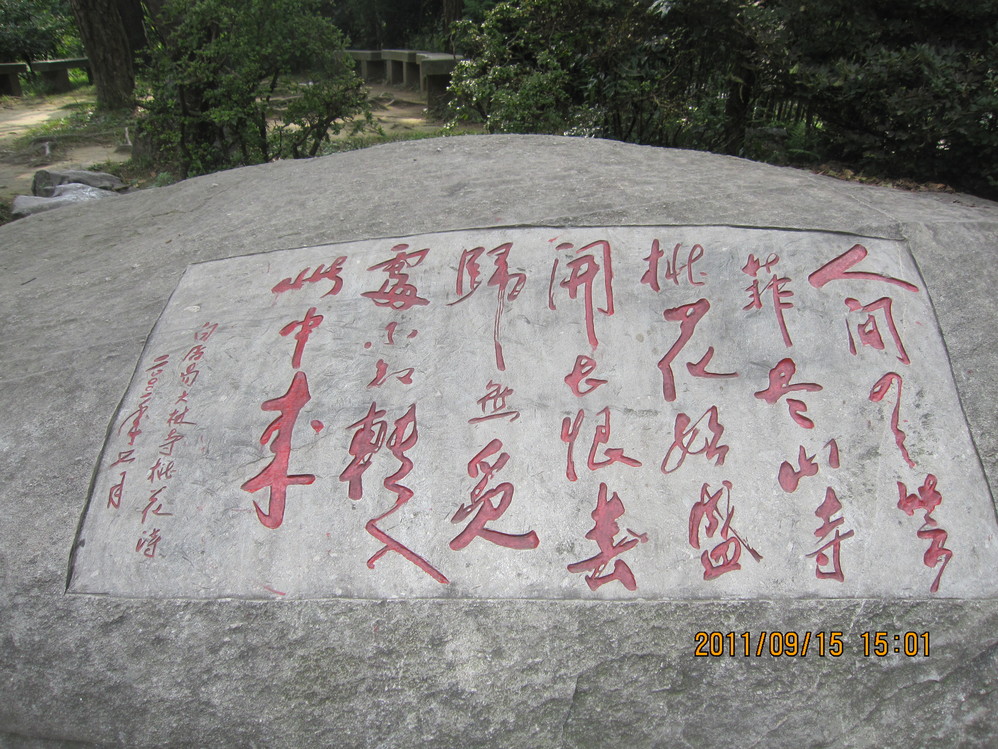 人间四月芳
菲尽山寺
桃花始盛
開长恨春
歸無觅
處不知轉入
此中来
白居易大林寺桃花诗
年 月
2011/09/15 15:01